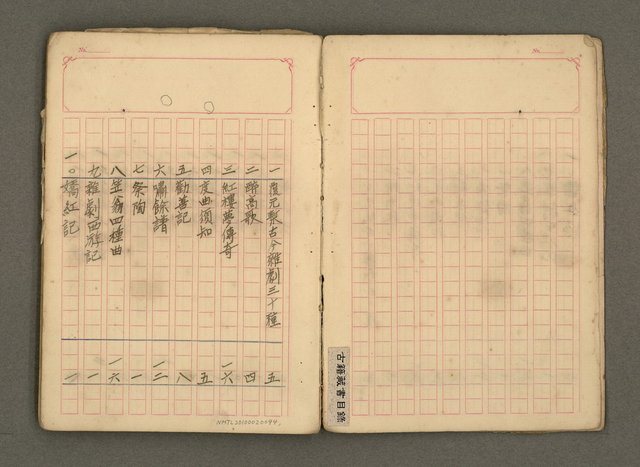 No.
No.
一 復元槧古今雜劇三十種 五
二 醉高歌 四
三 紅樓夢傳奇 一六
四 度曲須知 五
五 勸善記 八
六 嘯餘譜 一二
七 祭陶 一
八 笠翁四種曲 一六
九 雜劇西游記 一
一〇 嬌紅記 一
古籍藏書目錄
NMTL20100020094